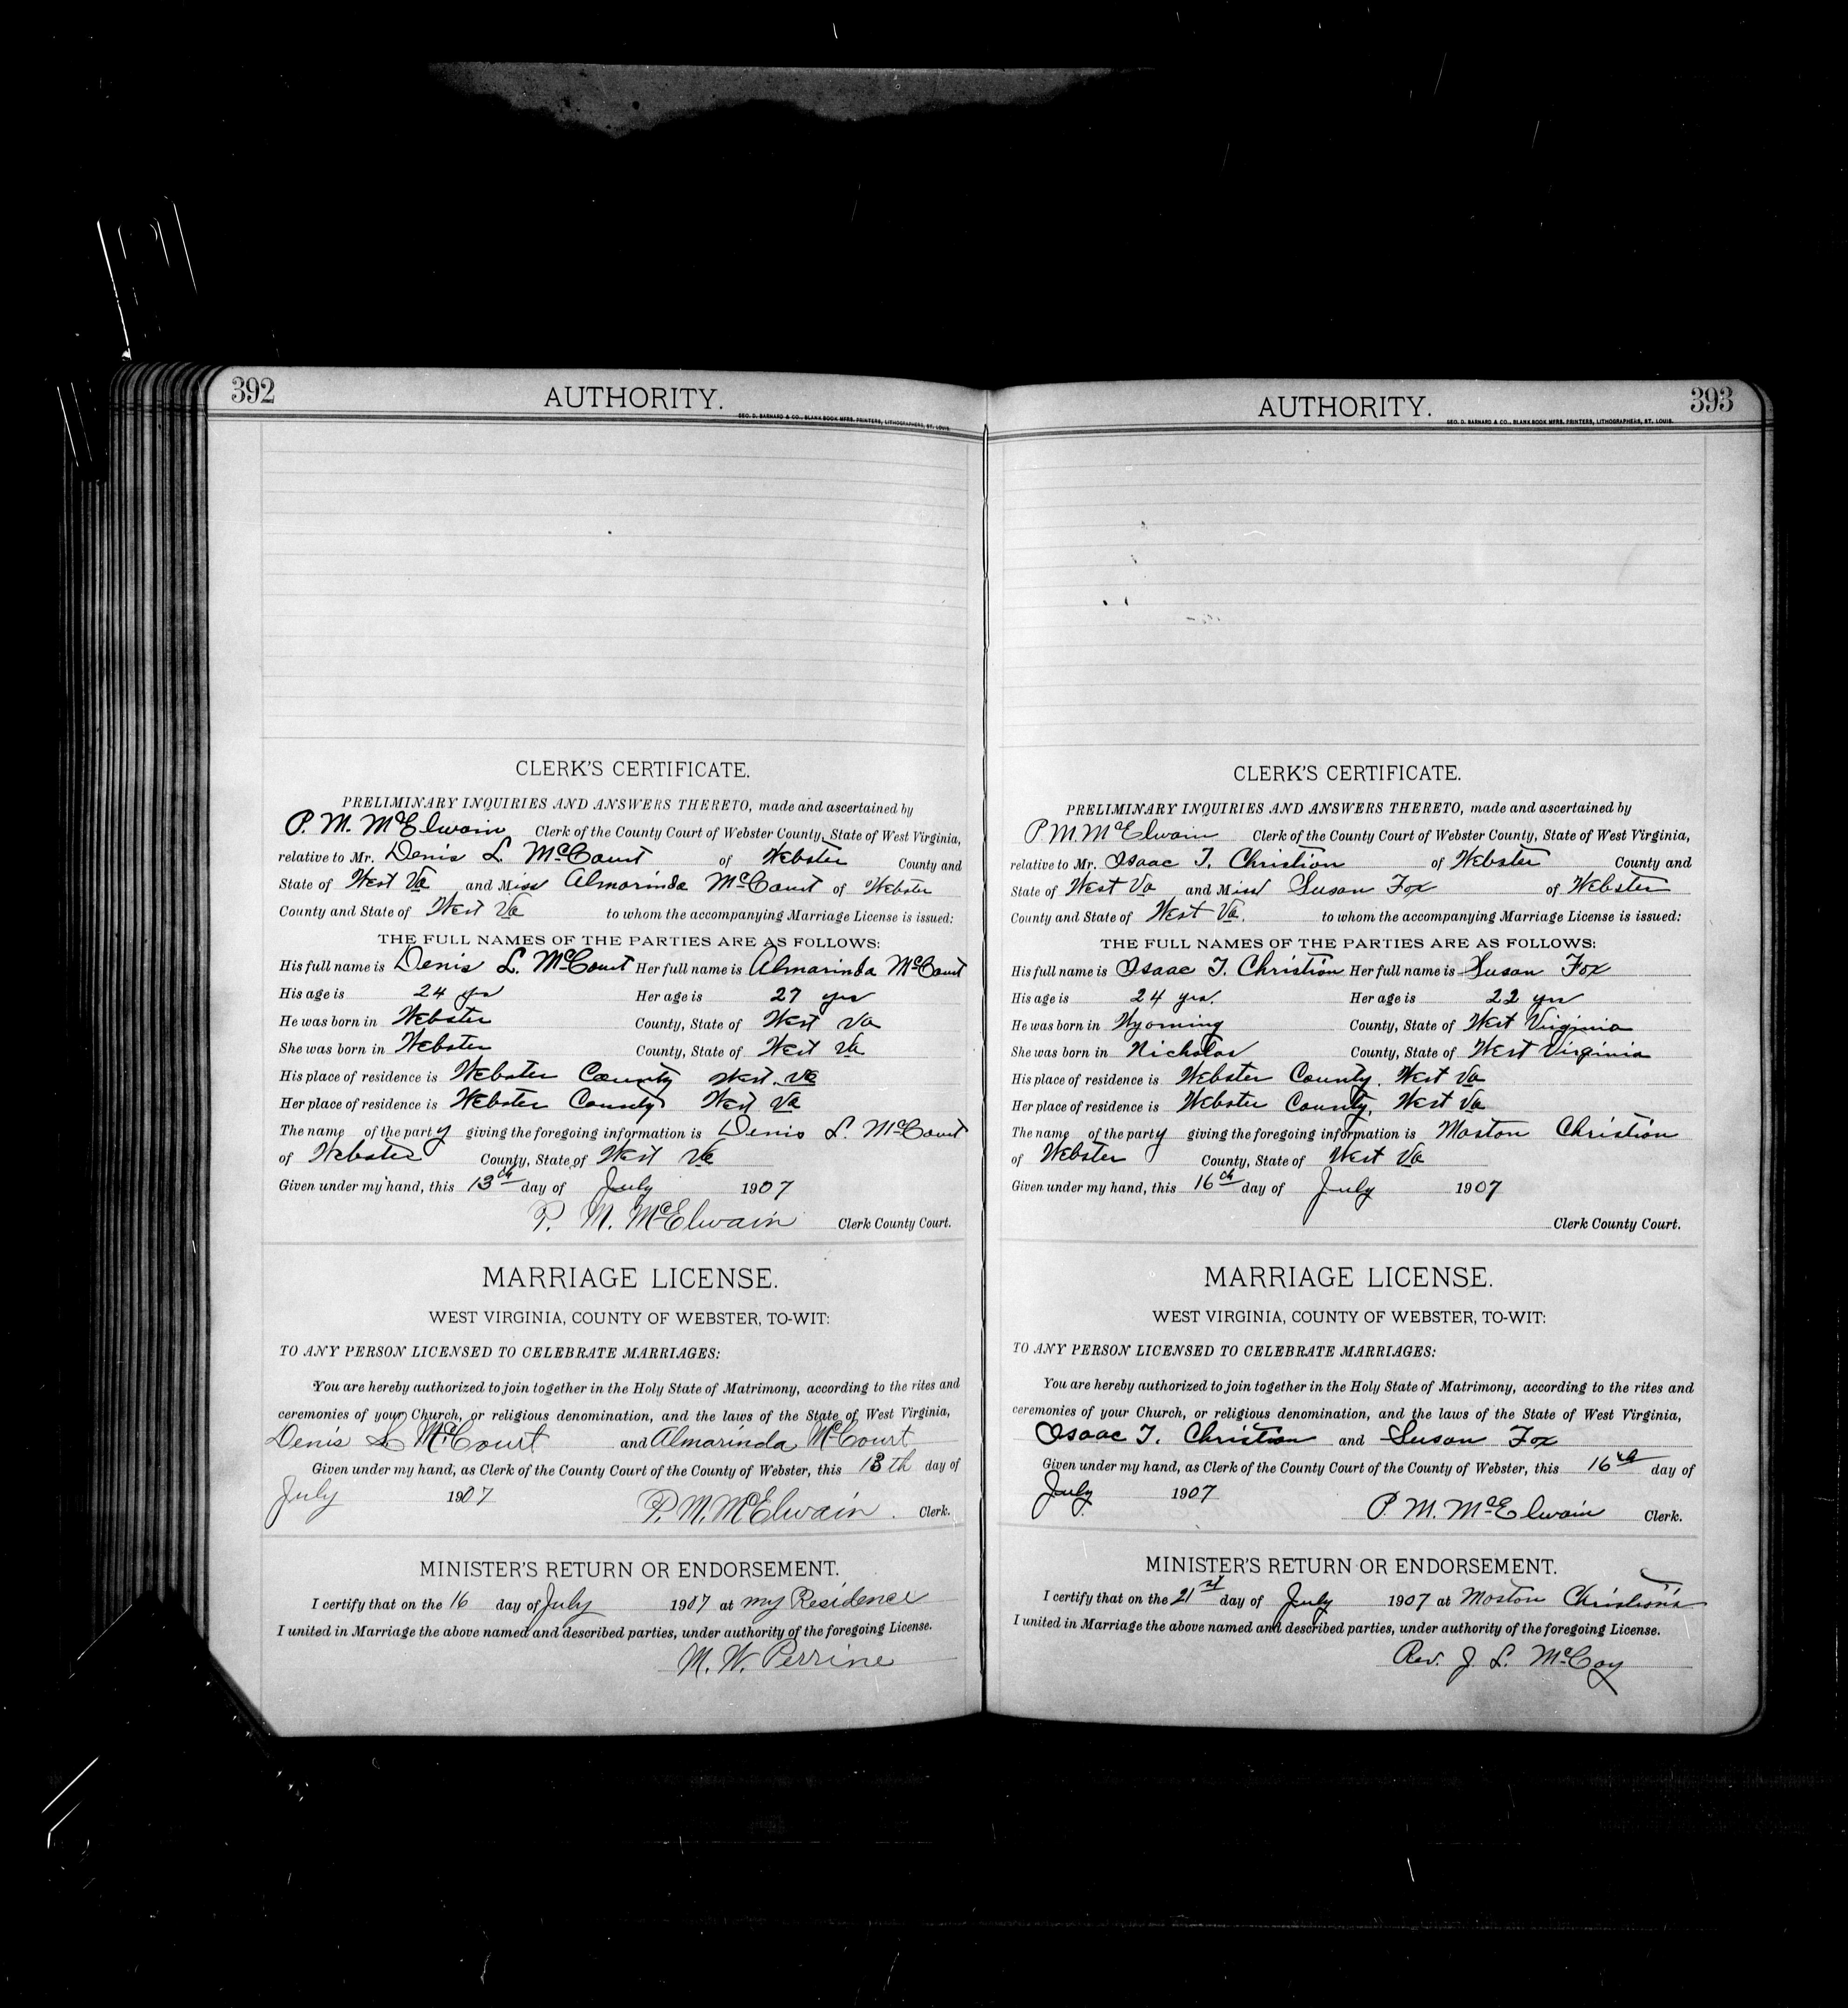 392
AUTHORITY.
GEO. D. BARNARD & CO., BLANK BOOK MFRS. PRINTERS, LITHOGRAPHERS, ST. LOUIS.
CLERK'S CERTIFICATE.
PRELIMINARY INQUIRIES AND ANSWERS THERETO, made and ascertained by
P. M. McElwain Clerk of the County Court of Webster County, State of West Virginia,
relative to Mr. Denis L. McCourt of Webster County and
State of West Va and Miss Almarinda McCourt of Webster
County and State of West Va to whom the accompanying Marriage License is issued:
THE FULL NAMES OF THE PARTIES ARE AS FOLLOWS:
His full name is Denis L. McCourt Her full name is Almarinda McCourt
His age is 24 yrs Her age is 27 yrs
He was born in Webster County, State of West Va
She was born in Webster County, State of West Va
His place of residence is Webster County West. Va
Her place of residence is Webster County West Va
The name of the party giving the foregoing information is Denis L. McCourt
of Webster County, State of West Va
Given under my hand, this 13th day of July 1907
P. M. McElwain Clerk County Court.
MARRIAGE LICENSE.
WEST VIRGINIA, COUNTY OF WEBSTER, TO-WIT:
TO ANY PERSON LICENSED TO CELEBRATE MARRIAGES:
You are hereby authorized to join together in the Holy State of Matrimony, according to the rites and
ceremonies of your Church, or religious denomination, and the laws of the State of West Virginia,
Denis L McCourt and Almarinda McCourt
Given under my hand, as Clerk of the County Court of the County of Webster, this 13th day of
July 1907 P. M. McElwain. Clerk.
MINISTER'S RETURN OR ENDORSEMENT.
I certify that on the 16 day of July 1907 at my Residence
I united in Marriage the above named and described parties, under authority of the foregoing License.
M. W. Perrine
393
AUTHORITY.
GEO. D. BARNARD & CO., BLANK BOOK MFRS. PRINTERS, LITHOGRAPHERS, ST. LOUIS.
CLERK'S CERTIFICATE.
PRELIMINARY INQUIRIES AND ANSWERS THERETO, made and ascertained by
P. M. McElwain Clerk of the County Court of Webster County, State of West Virginia,
relative to Mr. Isaac T. Christion of Webster County and
State of West Va and Miss Susan Fox of Webster
County and State of West Va. to whom the accompanying Marriage License is issued:
THE FULL NAMES OF THE PARTIES ARE AS FOLLOWS:
His full name is Isaac T. Christion Her full name is Susan Fox
His age is 24 yrs. Her age is 22 yrs
He was born in Wyoming County, State of West Virginia
She was born in Nicholas County, State of West Virginia
His place of residence is Webster County. West Va
Her place of residence is Webster County, West Va
The name of the party giving the foregoing information is Moston Christion
of Webster County, State of West Va
Given under my hand, this 16th day of July 1907
Clerk County Court.
MARRIAGE LICENSE.
WEST VIRGINIA, COUNTY OF WEBSTER, TO-WIT:
TO ANY PERSON LICENSED TO CELEBRATE MARRIAGES:
You are hereby authorized to join together in the Holy State of Matrimony, according to the rites and
ceremonies of your Church, or religious denomination, and the laws of the State of West Virginia,
Isaac T. Christion and Susan Fox
Given under my hand, as Clerk of the County Court of the County of Webster, this 16th day of
July 1907 P. M. McElwain Clerk.
MINISTER'S RETURN OR ENDORSEMENT.
I certify that on the 21st day of July 1907 at Moston Christion's
I united in Marriage the above named and described parties, under authority of the foregoing License.
Rev. J. L. McCoy